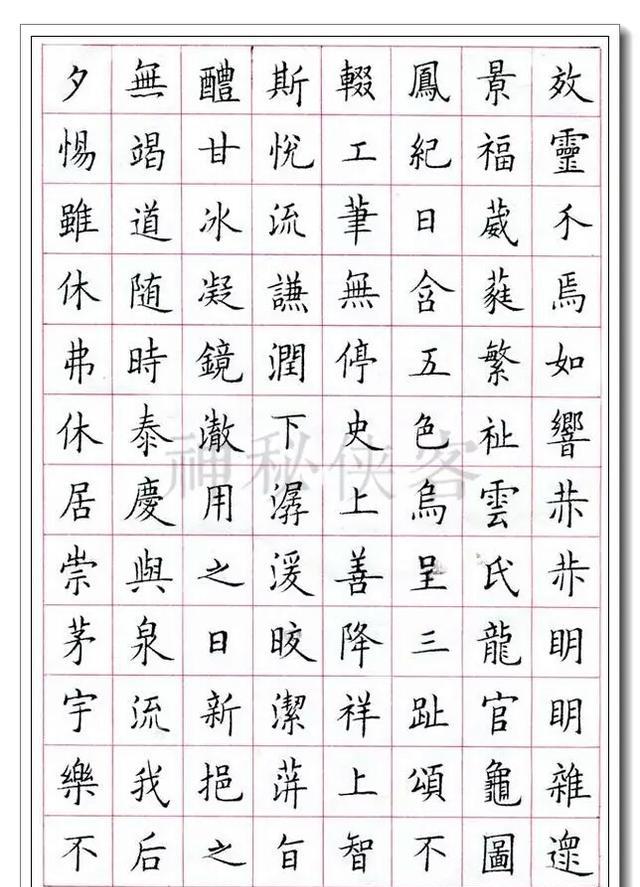 效靈介焉如響赫赫明明雜遝
景福葳蕤繁祉雲氏龍官龜圖
鳳紀日含五色烏呈三趾頌不
輟工筆無停史上善降祥上智
斯悅流謙潤下潺湲晈潔萍旨
醴甘冰凝鏡澈用之日新挹之
無竭道随時泰慶與泉流我后
夕惕雖休弗休居崇茅宇樂不
神秘侠客